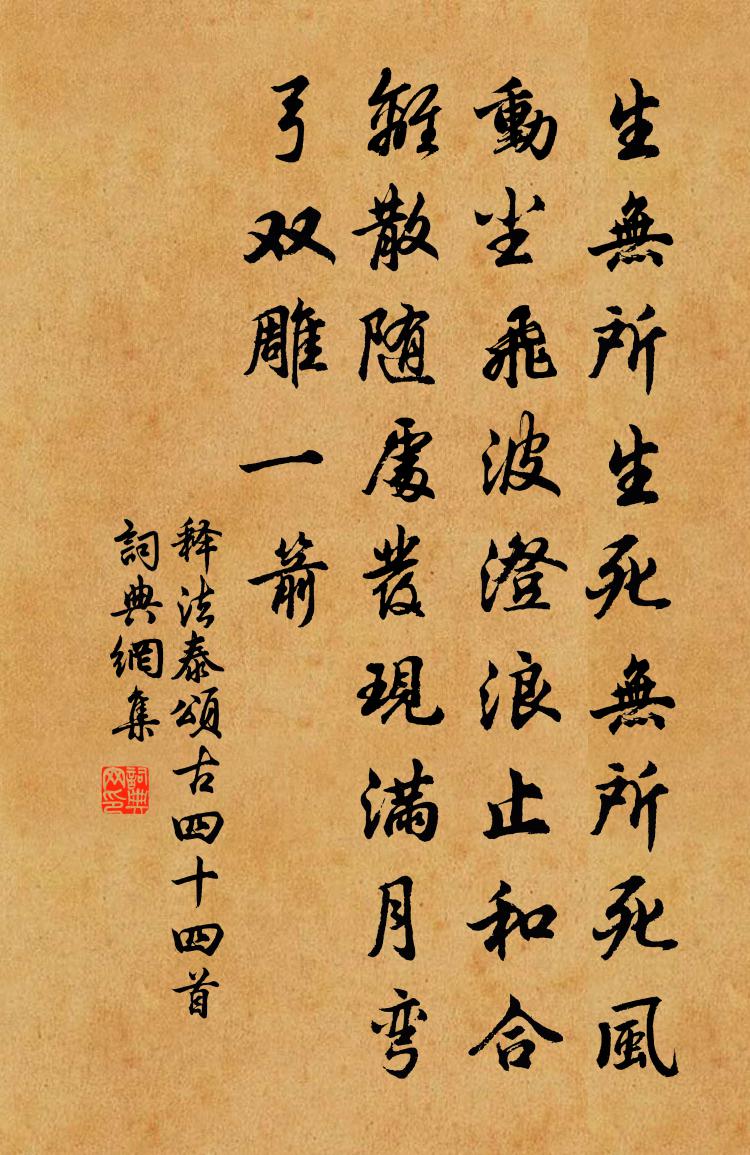 生無所生死無所死風
動尘飛波澄浪止和合
離散随處發現满月弯
弓双雕一箭
释法泰頌古四十四首
詞典網集
詞典网印